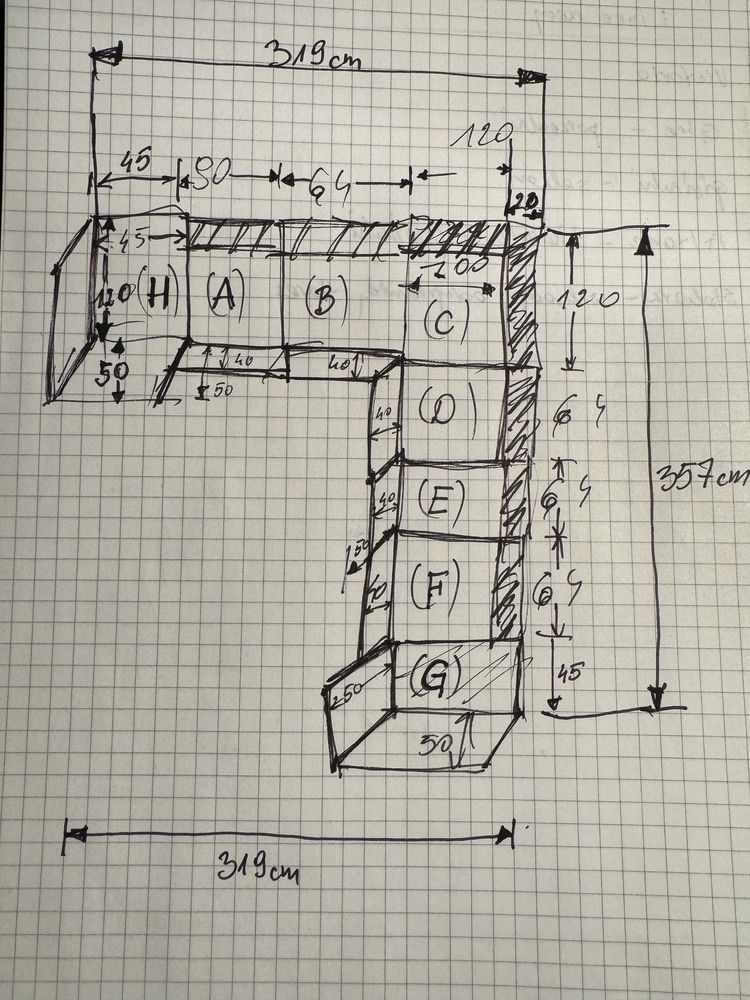 319cm
120
45 90 64
20
45 100
120 (H) (A) (B) (C) 120
50 40 40
50
(D) 64
40
(E) 64 357cm
40
50
(F) 64
40
(G) 45
250
50
319cm